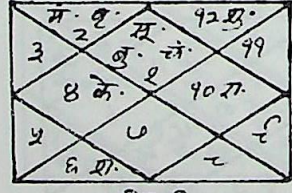 मं. बृ. सू. १२ शु.
३ २ बु. चं. ११
१
४ के. १० रा.
५ ७
६ श. ८